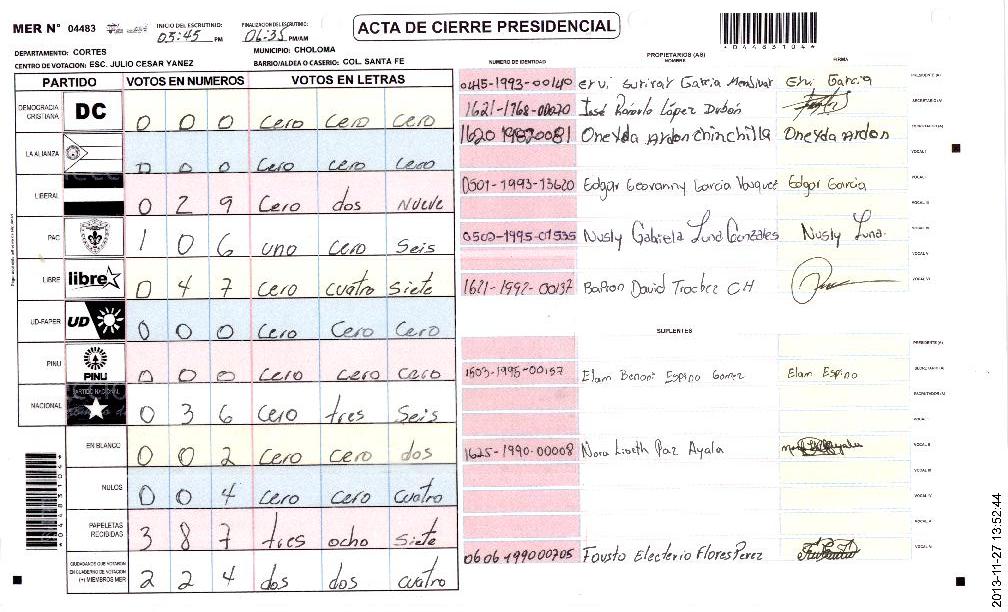 MER N° 04483
INICIO DEL ESCRUTINIO: 05:45 PM
FINALIZACION DEL ESCRUTINIO: 06:35 PM/AM
ACTA DE CIERRE PRESIDENCIAL
DEPARTAMENTO: CORTES
MUNICIPIO: CHOLOMA
CENTRO DE VOTACION: ESC. JULIO CESAR YANEZ
BARRIO/ALDEA O CASERIO: COL. SANTA FE
PARTIDO VOTOS EN NUMEROS VOTOS EN LETRAS
DEMOCRACIA CRISTIANA DC 0 0 0 Cero Cero Cero
LA ALIANZA 0 0 0 Cero Cero Cero
LIBERAL 0 2 9 Cero dos Nueve
PAC 1 0 6 uno Cero Seis
LIBRE libre 0 4 7 Cero cuatro Siete
UD-FAPER UD 0 0 0 Cero Cero Cero
PINU PINU 0 0 0 Cero Cero Cero
NACIONAL PARTIDO NACIONAL 0 3 6 Cero tres Seis
EN BLANCO 0 0 2 Cero Cero dos
NULOS 0 0 4 Cero Cero Cuatro
PAPELETAS RECIBIDAS 3 8 7 tres ocho Siete
CIUDADANOS QUE VOTARON EN CUADERNO DE VOTACION (+) MIEMBROS MER 2 2 4 dos dos cuatro
PROPIETARIOS (AS)
NUMERO DE IDENTIDAD NOMBRE FIRMA
Garcia Mendivar Garcia PRESIDENTE (A)
José López Dubón SECRETARIO (A)
Oneyda Ardon chinchilla Oneyda Ardon ESCRUTADOR (A)
VOCAL I
0501-1993-13620 Edgar Geovanny Garcia Vasquez Edgar Garcia VOCAL II
VOCAL III
Nusly Gabriela Luna Gonzales Nusly Luna. VOCAL IV
VOCAL V
1621-1992-00137 David CH VOCAL VI
SUPLENTES
PRESIDENTE (A)
1503-1995-00157 Elam Benoni Espino Gomez Elam Espino SECRETARIO (A)
ESCRUTADOR (A)
VOCAL I
1625-1990-00008 Nora Liseth Paz Ayala VOCAL II
VOCAL III
VOCAL IV
VOCAL V
0606199000705 Fausto Electerio Flores Perez VOCAL VI
0 4 4 8 3 1 0 4
2013-11-27 13:52:44